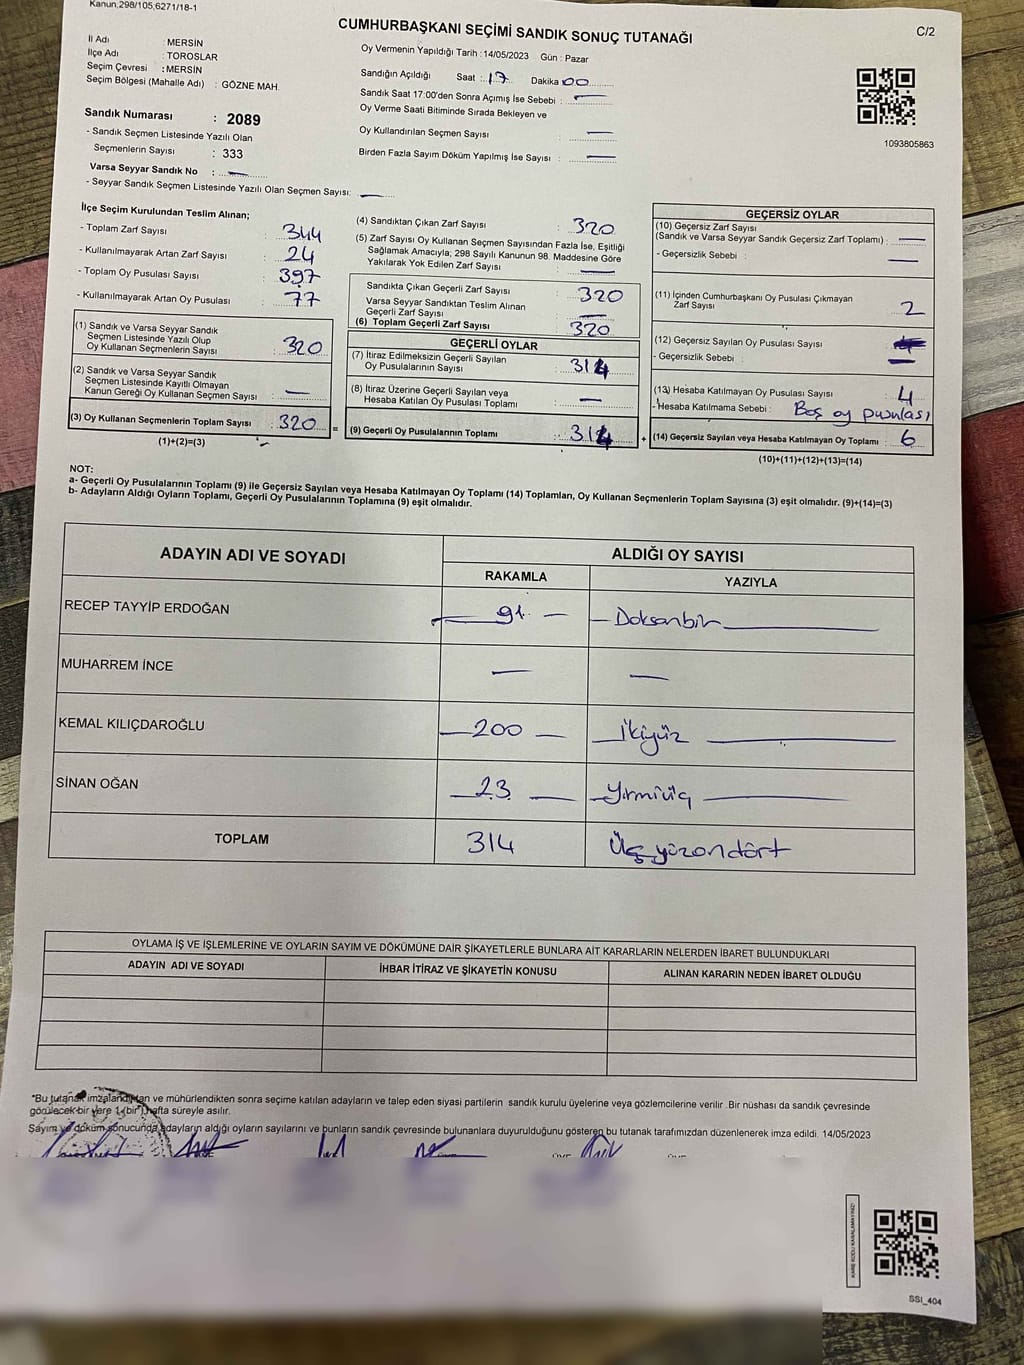 Kanun,298/105,6271/18-1
CUMHURBAŞKANI SEÇİMİ SANDIK SONUÇ TUTANAĞI
C/2
İl Adı : MERSİN
İlçe Adı : TOROSLAR
Seçim Çevresi : MERSİN
Seçim Bölgesi (Mahalle Adı) : GÖZNE MAH.
Oy Vermenin Yapıldığı Tarih : 14/05/2023 Gün : Pazar
Sandığın Açıldığı Saat : 17 Dakika 00
Sandık Saat 17:00'den Sonra Açımış İse Sebebi : —
Oy Verme Saati Bitiminde Sırada Bekleyen ve
Oy Kullandırılan Seçmen Sayısı —
Birden Fazla Sayım Döküm Yapılmış İse Sayısı : —
1093805863
Sandık Numarası : 2089
- Sandık Seçmen Listesinde Yazılı Olan
Seçmenlerin Sayısı : 333
Varsa Seyyar Sandık No : —
- Seyyar Sandık Seçmen Listesinde Yazılı Olan Seçmen Sayısı: —
İlçe Seçim Kurulundan Teslim Alınan;
- Toplam Zarf Sayısı : 344
- Kullanılmayarak Artan Zarf Sayısı : 24
- Toplam Oy Pusulası Sayısı : 397
- Kullanılmayarak Artan Oy Pusulası : 77
(1) Sandık ve Varsa Seyyar Sandık
Seçmen Listesinde Yazılı Olup
Oy Kullanan Seçmenlerin Sayısı : 320
(2) Sandık ve Varsa Seyyar Sandık
Seçmen Listesinde Kayıtlı Olmayan
Kanun Gereği Oy Kullanan Seçmen Sayısı : —
(3) Oy Kullanan Seçmenlerin Toplam Sayısı : 320 =
(1)+(2)=(3)
(4) Sandıktan Çıkan Zarf Sayısı : 320
(5) Zarf Sayısı Oy Kullanan Seçmen Sayısından Fazla İse, Eşitliği
Sağlamak Amacıyla; 298 Sayılı Kanunun 98. Maddesine Göre
Yakılarak Yok Edilen Zarf Sayısı : —
Sandıkta Çıkan Geçerli Zarf Sayısı : 320
Varsa Seyyar Sandıktan Teslim Alınan
Geçerli Zarf Sayısı : —
(6) Toplam Geçerli Zarf Sayısı : 320
GEÇERLİ OYLAR
(7) İtiraz Edilmeksizin Geçerli Sayılan
Oy Pusulalarının Sayısı : 314
(8) İtiraz Üzerine Geçerli Sayılan veya
Hesaba Katılan Oy Pusulası Toplamı : —
(9) Geçerli Oy Pusulalarının Toplamı : 314 +
GEÇERSİZ OYLAR
(10) Geçersiz Zarf Sayısı
(Sandık ve Varsa Seyyar Sandık Geçersiz Zarf Toplamı) : —
- Geçersizlik Sebebi : —
(11) İçinden Cumhurbaşkanı Oy Pusulası Çıkmayan
Zarf Sayısı : 2
(12) Geçersiz Sayılan Oy Pusulası Sayısı :
- Geçersizlik Sebebi : —
(13) Hesaba Katılmayan Oy Pusulası Sayısı : 4
- Hesaba Katılmama Sebebi : Boş oy pusulası
(14) Geçersiz Sayılan veya Hesaba Katılmayan Oy Toplamı : 6
(10)+(11)+(12)+(13)=(14)
NOT:
a- Geçerli Oy Pusulalarının Toplamı (9) ile Geçersiz Sayılan veya Hesaba Katılmayan Oy Toplamı (14) Toplamları, Oy Kullanan Seçmenlerin Toplam Sayısına (3) eşit olmalıdır. (9)+(14)=(3)
b- Adayların Aldığı Oyların Toplamı, Geçerli Oy Pusulalarının Toplamına (9) eşit olmalıdır.
ADAYIN ADI VE SOYADI ALDIĞI OY SAYISI
RAKAMLA YAZIYLA
RECEP TAYYİP ERDOĞAN — 91 — — Doksanbir —
MUHARREM İNCE — —
KEMAL KILIÇDAROĞLU — 200 — — İkiyüz —
SİNAN OĞAN — 23 — — Yirmiüç —
TOPLAM 314 Üçyüzondört
OYLAMA İŞ VE İŞLEMLERİNE VE OYLARIN SAYIM VE DÖKÜMÜNE DAİR ŞİKAYETLERLE BUNLARA AİT KARARLARIN NELERDEN İBARET BULUNDUKLARI
ADAYIN ADI VE SOYADI İHBAR İTİRAZ VE ŞİKAYETİN KONUSU ALINAN KARARIN NEDEN İBARET OLDUĞU
"Bu tutanak imzalandıktan ve mühürlendikten sonra seçime katılan adayların ve talep eden siyasi partilerin sandık kurulu üyelerine veya gözlemcilerine verilir .Bir nüshası da sandık çevresinde
görülecek bir yere 1 (bir) hafta süreyle asılır.
Sayım ve döküm sonucunda adayların aldığı oyların sayılarını ve bunların sandık çevresinde bulunanlara duyurulduğunu gösteren bu tutanak tarafımızdan düzenlenerek imza edildi. 14/05/2023
KARE KODU KARALAMAYINIZ!
SSI_404